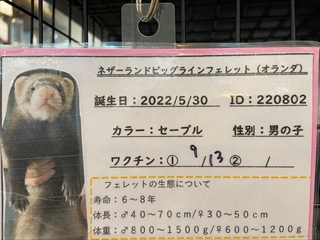 ネザーランドビッグラインフェレット（オランダ）
誕生日：2022/5/30　ID：220802
カラー：セーブル　性別：男の子
ワクチン：① 9/13 ② /
フェレットの生態について
寿命：6～8年
体長：♂40～70cm/♀30～50cm
体重：♂800～1500g/♀600～1200g